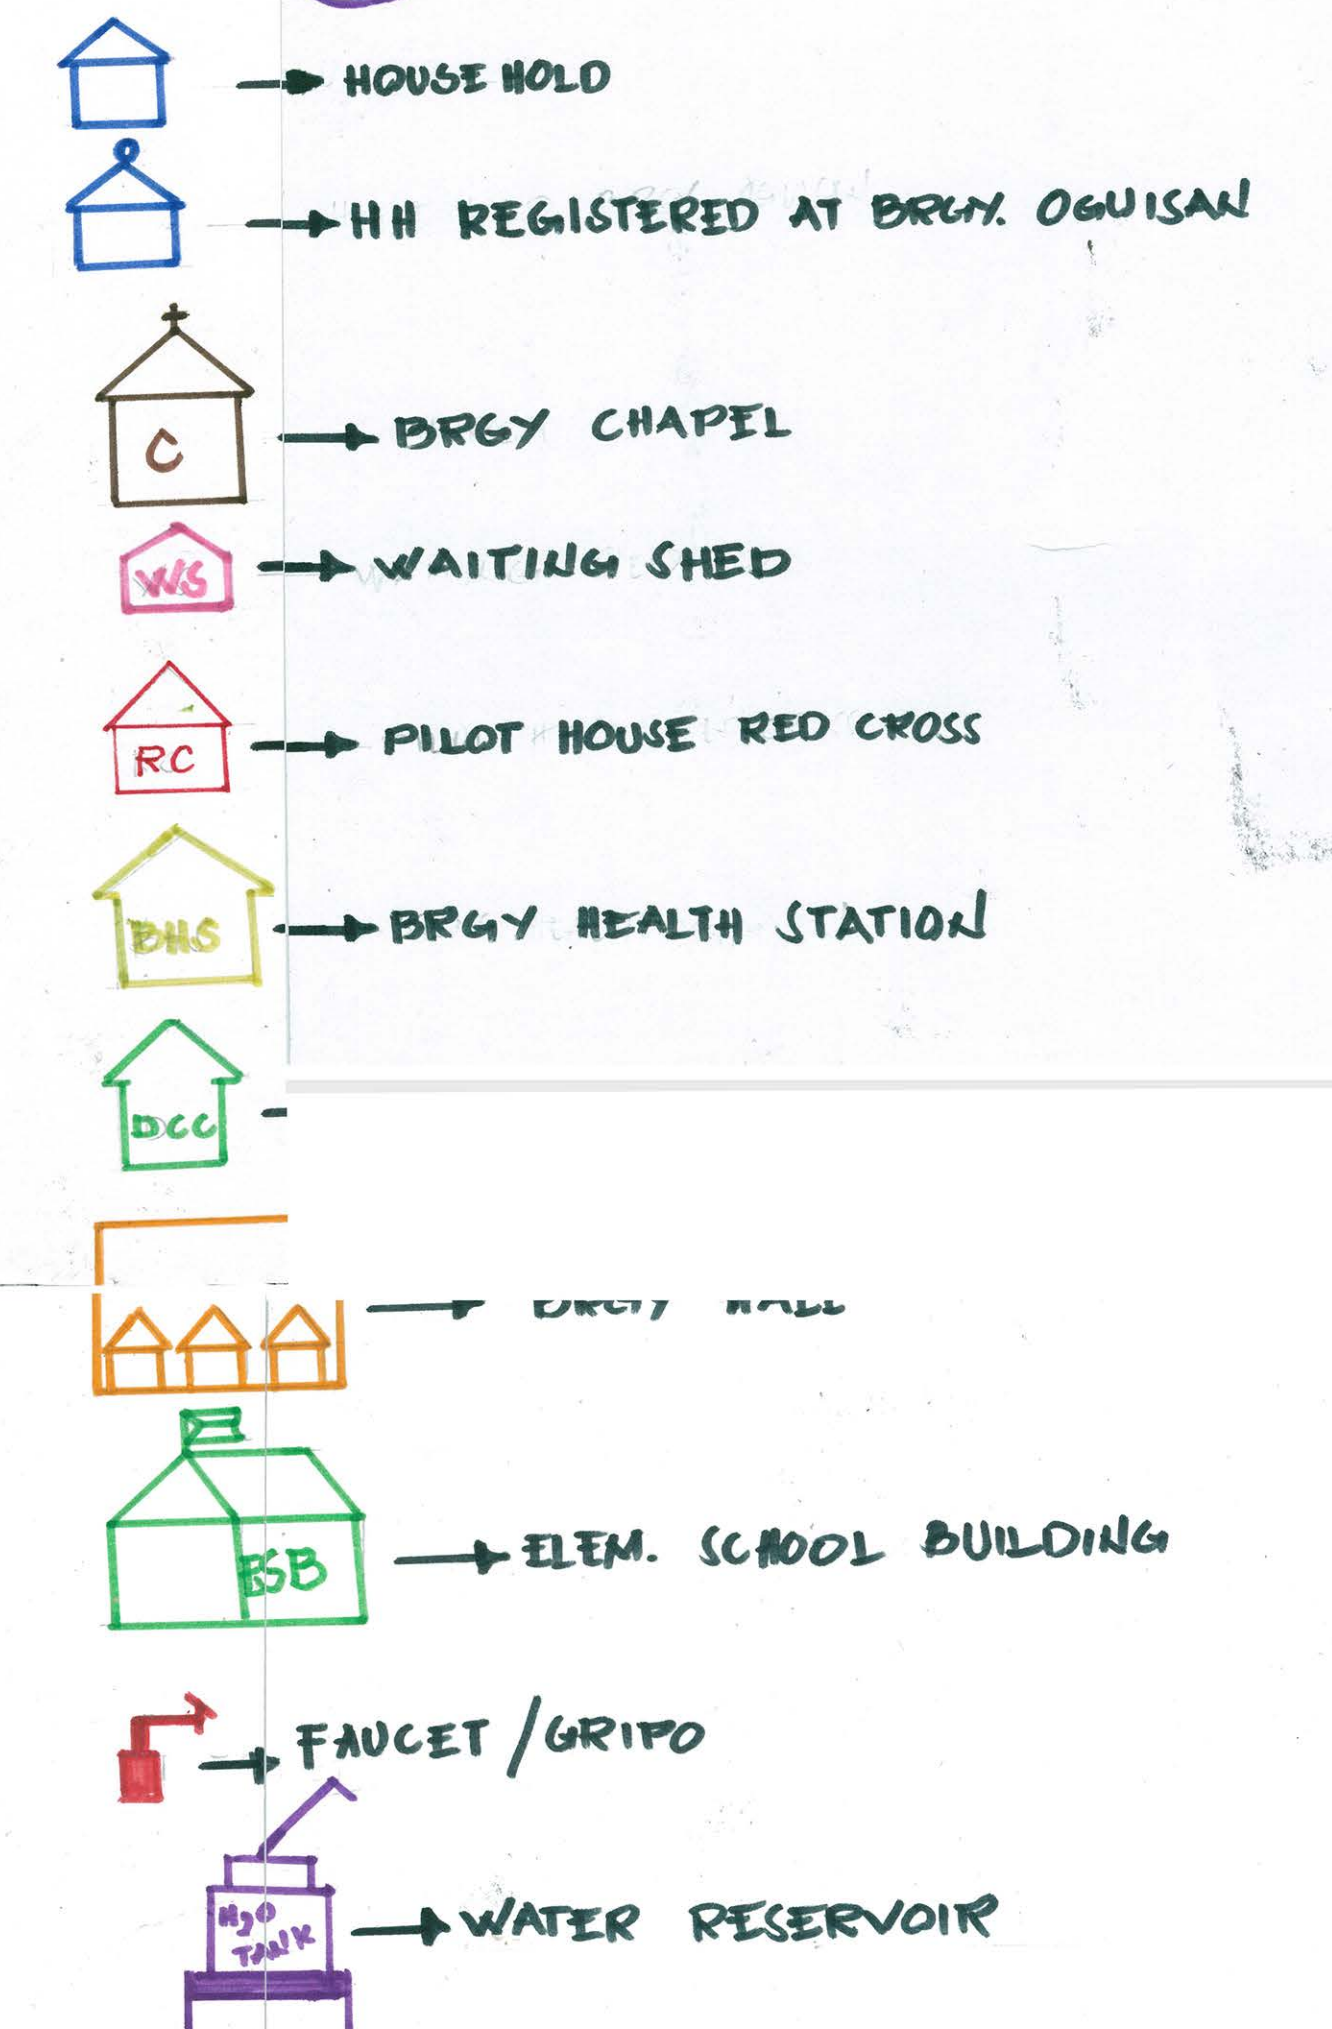 HOUSE HOLD
HH REGISTERED AT BRGY. OGUISAN
C
BRGY CHAPEL
WS
WAITING SHED
RC
PILOT HOUSE RED CROSS
BHS
BRGY HEALTH STATION
DCC
BRGY HALL
ESB
ELEM. SCHOOL BUILDING
FAUCET / GRIPO
H2O
TANK
WATER RESERVOIR